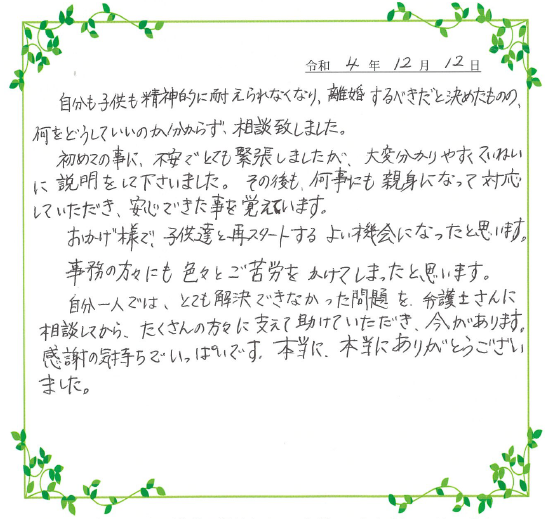 令和 4 年 12 月 12 日
自分も子供も精神的に耐えられなくなり、離婚するべきだと決めたものの、
何をどうしていいのか分からず、相談致しました。
初めての事に、不安でとても緊張しましたが、大変分かりやすくていねい
に説明をして下さいました。その後も、何事にも親身になって対応
していただき、安心できた事を覚えています。
おかげ様で、子供達と再スタートするよい機会になったと思います。
事務の方々にも色々とご苦労をかけてしまったと思います。
自分一人では、とても解決できなかった問題を、弁護士さんに
相談してから、たくさんの方々に支えて助けていただき、今があります。
感謝の気持ちでいっぱいです。本当に、本当にありがとうござい
ました。